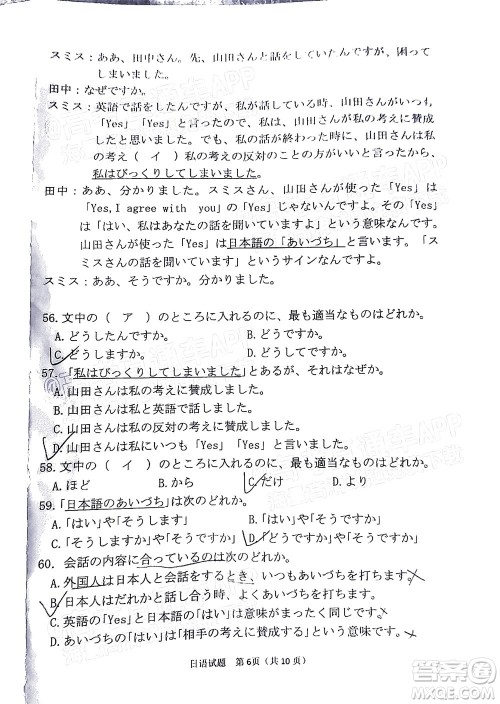 スミス：ああ、田中さん。先、山田さんと話をしていたんですが、困って
しまいました。
田中：なぜですか。
スミス：英語で話をしたんですが、私が話している時、山田さんがいつも
「Yes」「Yes」と言っていましたから、山田さんが私の考えに賛成
したと思いました。でも、私の話が終わった時に、山田さんは私
の考え（　イ　）私の考えの反対のことの方がいいと言いました。
私はびっくりしてしまいました。
田中：ああ、分かりました。スミスさん、山田さんが使った「Yes」は
「Yes,I agree with　you」の「Yes」じゃないんですよ。その「Yes」
は「はい、私はあなたの話を聞いていますよ」という意味なんです。
山田さんが使った「Yes」は日本語の「あいづち」と言います。「ス
ミスさんの話を聞いていますよ」というサインなんですよ。
スミス：ああ、そうですか。分かりました。
56. 文中の（　ア　）のところに入れるのに、最も適当なものはどれか。
A. どうしたんですか。　B. どうですか。
C. どうしますか。　D. どうしてですか。
57. 「私はびっくりしてしまいました」とあるが、それはなぜか。
A. 山田さんは私の考えに賛成しました。
B. 山田さんは私と英語で話しました。
C. 山田さんは私の反対の考えに賛成しました。
D. 山田さんは私にいつも「Yes」「Yes」と言いました。
58. 文中の（　イ　）のところに入れるのに、最も適当なものはどれか。
A. ほど　B. から　C. だけ　D. より
59. 「日本語のあいづち」は次のどれか。
A. 「はい」や「そうします」　B. 「はい」や「どうも」
C. 「はい」や「どうぞ」　D. 「はい」や「そうですか」
60. 会話の内容に合っているのは次のどれか。
A. 外国人は日本人と会話をするとき、いつもあいづちを打ちます。
B. 日本人はだれかと話し合う時、よくあいづちを打ちます。
C. 英語の「Yes」と日本語の「はい」は意味がまったく同じです。
D. あいづちの「はい」は「相手の考えに賛成する」という意味です。
日语试题　第 6页（共 10 页）
答案圈